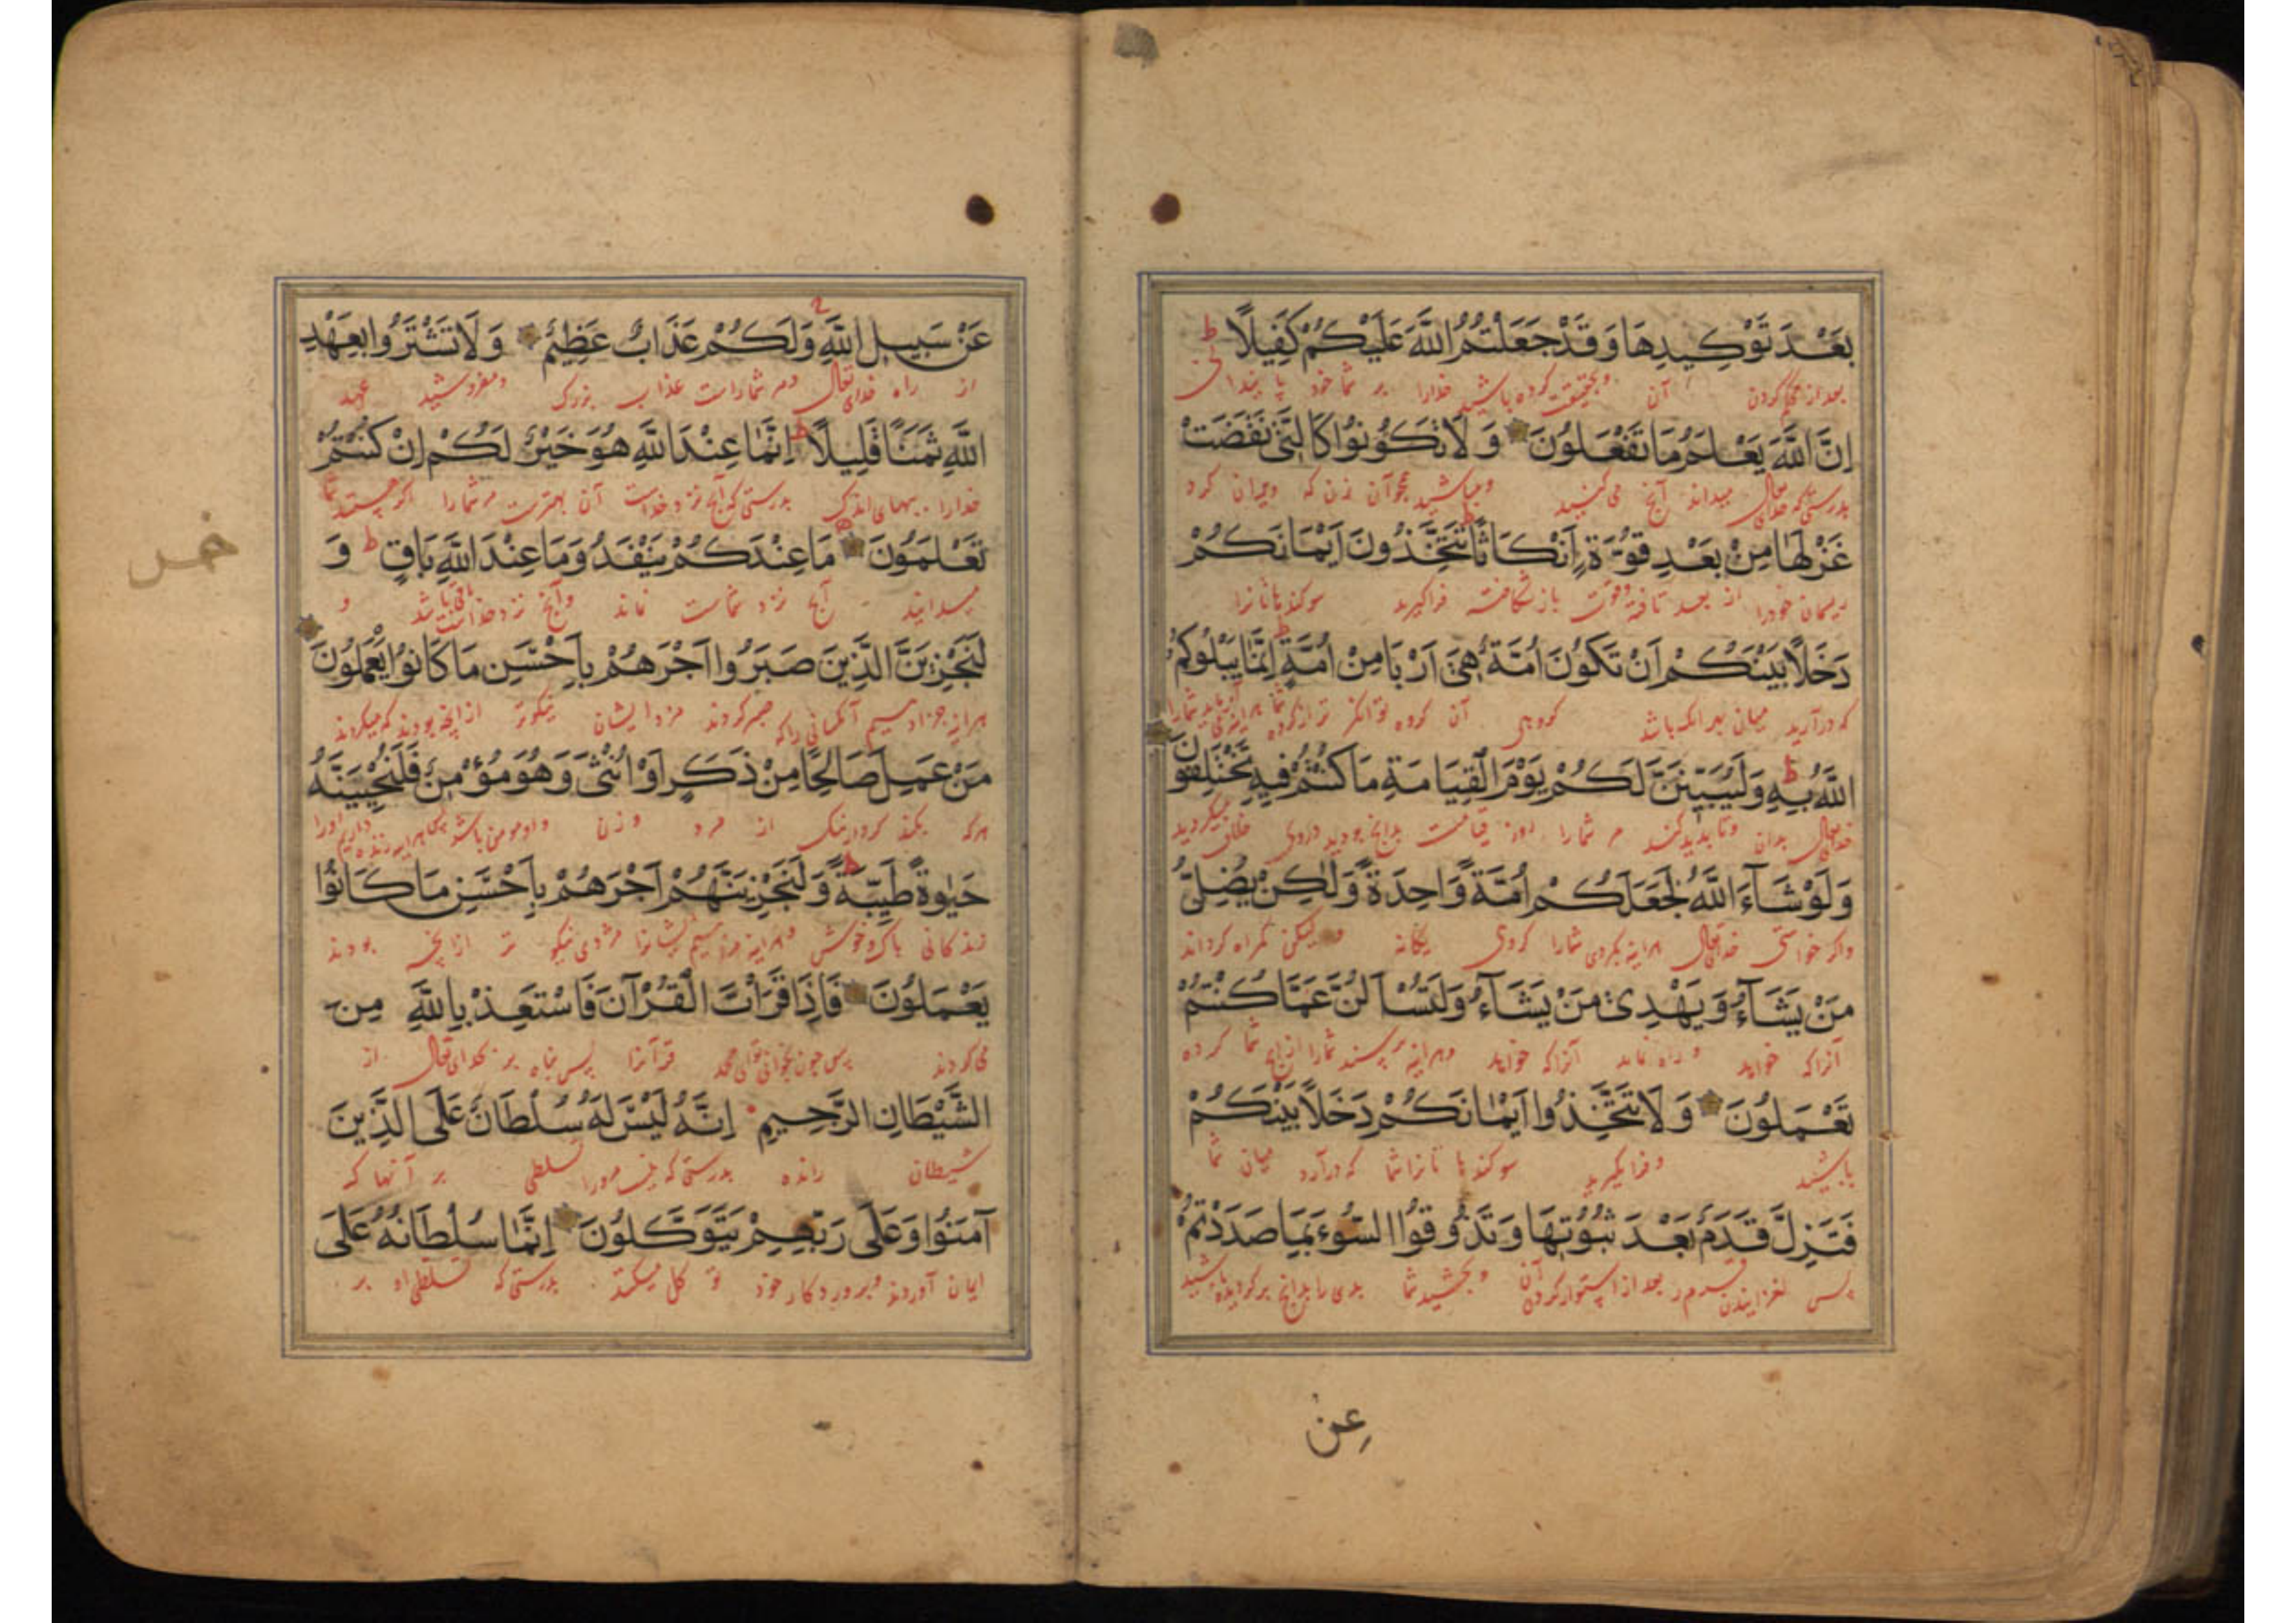 بَعْدَ تَوْكِيدِهَا وَقَدْ جَعَلْتُمُ اللَّهَ عَلَيْكُمْ كَفِيلًا ط
بعد از کردن آن و بحقیقت کرده باشید خدارا بر شما خود
اِنَّ اللَّهَ يَعْلَمُ مَا تَفْعَلُونَ وَلَا تَكُونُوا كَالَّتِي نَقَضَتْ
بدرستی که خدای تعالی میداند آنچ می کنید و مباشید همچو آن زن که ویران کرد
غَزْلَهَا مِنْ بَعْدِ قُوَّةٍ اَنْكَاثًا تَتَّخِذُونَ اَيْمَانَكُمْ
ریسمان خودرا از بعد تافته وقوت باز شکافته فراگیرید سوکندهاتانرا
دَخَلًا بَيْنَكُمْ اَنْ تَكُونَ اُمَّةٌ هِيَ اَرْبَا مِنْ اُمَّةٍ ط اِنَّمَا يَبْلُوكُمُ
که درآرید میان باشد کروهی آن کروه توانکر تر از کروه
اللَّهُ بِهِ ط وَلَيُبَيِّنَنَّ لَكُمْ يَوْمَ الْقِيَامَةِ مَا كُنْتُمْ فِيهِ تَخْتَلِفُونَ
خدای تعالی بدان و تا پدید کند مر شمارا روز قیامت بدانچ بودید دروی خلاف میکردید
وَلَوْ شَاءَ اللَّهُ لَجَعَلَكُمْ اُمَّةً وَاحِدَةً وَلَكِنْ يُضِلُّ
واکر خواستی خدای تعالی هراینه بکردی شمارا کروی یکانه و لیکن کمراه کرداند
مَنْ يَشَاءُ وَيَهْدِي مَنْ يَشَاءُ وَلَتُسْأَلُنَّ عَمَّا كُنْتُمْ
آنرا که خواهد و راه نماید آنرا که خواهد وهراینه پرسند شمارا ازانچ شما کرده
تَعْمَلُونَ وَلَا تَتَّخِذُوا اَيْمَانَكُمْ دَخَلًا بَيْنَكُمْ
باشید و فرا مکیرید سوکندها تانرا شما که درآرد میان شما
فَتَزِلَّ قَدَمٌ بَعْدَ ثُبُوتِهَا وَتَذُوقُوا السُّوءَ بِمَا صَدَدْتُمْ
پس لغزانیدن قدم بعد از استوار کردن آن و بچشید شما بدی را بدانچ برکردیده باشید
عن
عَنْ سَبِيلِ اللَّهِ وَلَكُمْ عَذَابٌ عَظِيمٌ وَلَا تَشْتَرُوا بِعَهْدِ
از راه خدای تعالی و مر شماراست عذاب بزرک و مفروشید عهد
اللَّهِ ثَمَنًا قَلِيلًا ط اِنَّمَا عِنْدَ اللَّهِ هُوَ خَيْرٌ لَكُمْ اِنْ كُنْتُمْ
خدارا ببهای اندک بدرستی که آنچ نزد خداست آن بهترست مر شمارا اکر هستید شما
تَعْلَمُونَ مَا عِنْدَكُمْ يَنْفَدُ وَمَا عِنْدَ اللَّهِ بَاقٍ ط وَ
میدانید آنچ نزد شماست نماند وآنچ نزد خداست باقی باشد و
لَنَجْزِيَنَّ الَّذِينَ صَبَرُوا اَجْرَهُمْ بِاَحْسَنِ مَا كَانُوا يَعْمَلُونَ
هراینه جزا دهیم آنکسانی راکه صبر کردند مزد ایشان نیکوتر ازانچه بودند که میکردند
مَنْ عَمِلَ صَالِحًا مِنْ ذَكَرٍ اَوْ اُنْثَى وَهُوَ مُؤْمِنٌ فَلَنُحْيِيَنَّهُ
هرکه بکند کردار نیک از مرد و زن و او مومن باشد پس هراینه زنده داریم اورا
حَيٰوةً طَيِّبَةً ط وَلَنَجْزِيَنَّهُمْ اَجْرَهُمْ بِاَحْسَنِ مَا كَانُوا
زندکانی پاک وخوش وهراینه جزا دهیم ایشانرا مزدی نیکو تر ازانچ بودند
يَعْمَلُونَ فَاِذَا قَرَأْتَ الْقُرْآنَ فَاسْتَعِذْ بِاللَّهِ مِنَ
می کردند پس چون بخوانی تو ای محمد قرآنرا پس پناه بر بخدای تعالی از
الشَّيْطَانِ الرَّجِيمِ اِنَّهُ لَيْسَ لَهُ سُلْطَانٌ عَلَى الَّذِينَ
شیطان رانده بدرستی که نیست مر اورا تسلطی بر آنها که
آمَنُوا وَعَلَى رَبِّهِمْ يَتَوَكَّلُونَ اِنَّمَا سُلْطَانُهُ عَلَى
ایمان آوردند وبر پروردکار خود توکل میکنند بدرستی که تسلطی او بر
خمس